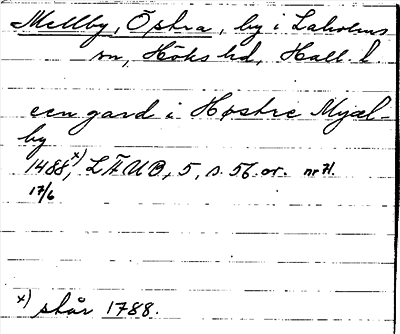 Mellby, Östra, by i Laholms
sn, Höks hd, Hall. l
een gard i Høstre Myæl-
by
1488 x), LÄUB, 5, s. 56. or. nr 71.
17/6
x) står 1788.